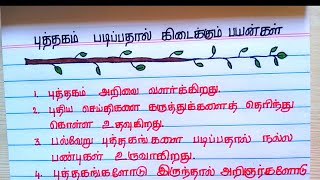 புத்தகம் படிப்பதால் கிடைக்கும் பயன்கள்
1. புத்தகம் அறிவை வளர்க்கிறது.
2. புதிய செய்திகளை கருத்துக்களைத் தெரிந்து
கொள்ள உதவுகிறது.
3. பல்வேறு புத்தகங்களை படிப்பதால் நல்ல
பண்புகள் உருவாகிறது.
4. புத்தகங்களோடு இருந்தால் அறிஞர்களோடு